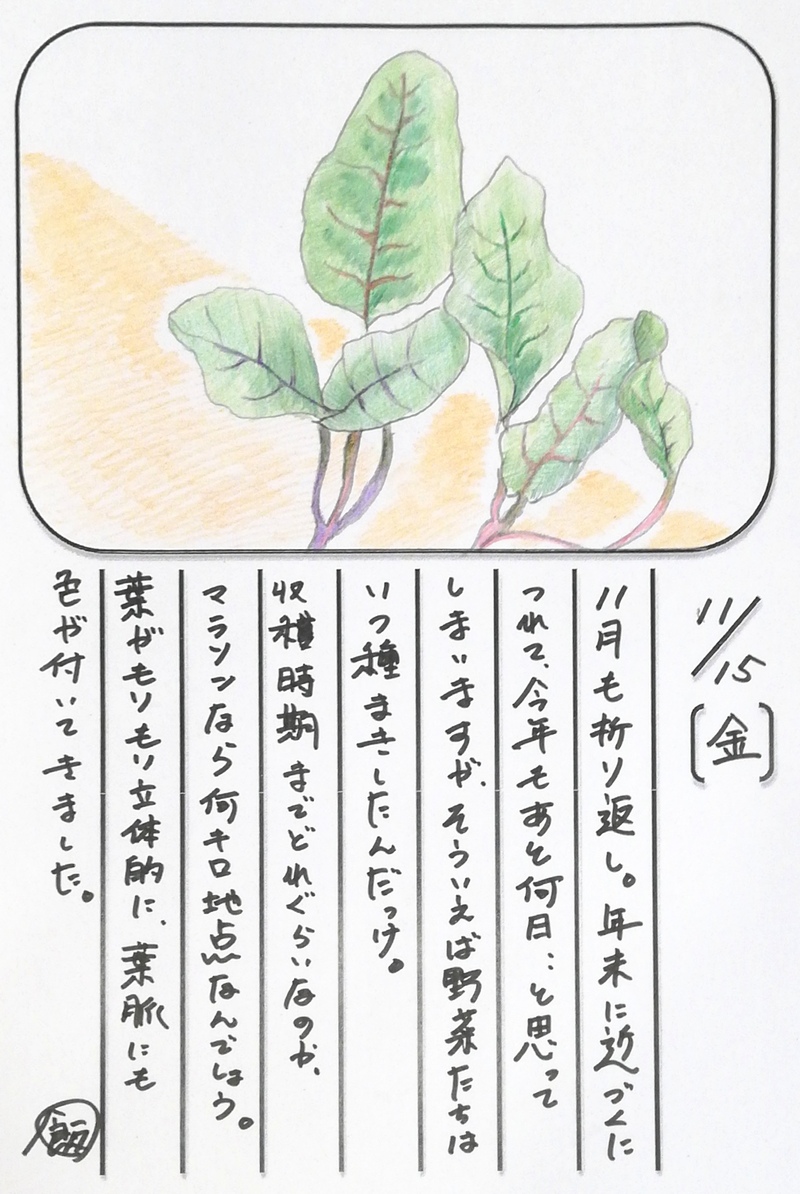 11/15
[金]
11月も折り返し。年末に近づくに
つれて、今年もあと何日‥と思って
しまいますが、そういえば野菜たちは
いつ種まきしたんだっけ。
収穫時期までどれぐらいなのか、
マラソンなら何キロ地点なんでしょう。
葉がもりもり立体的に、葉脈にも
色が付いてきました。
飯